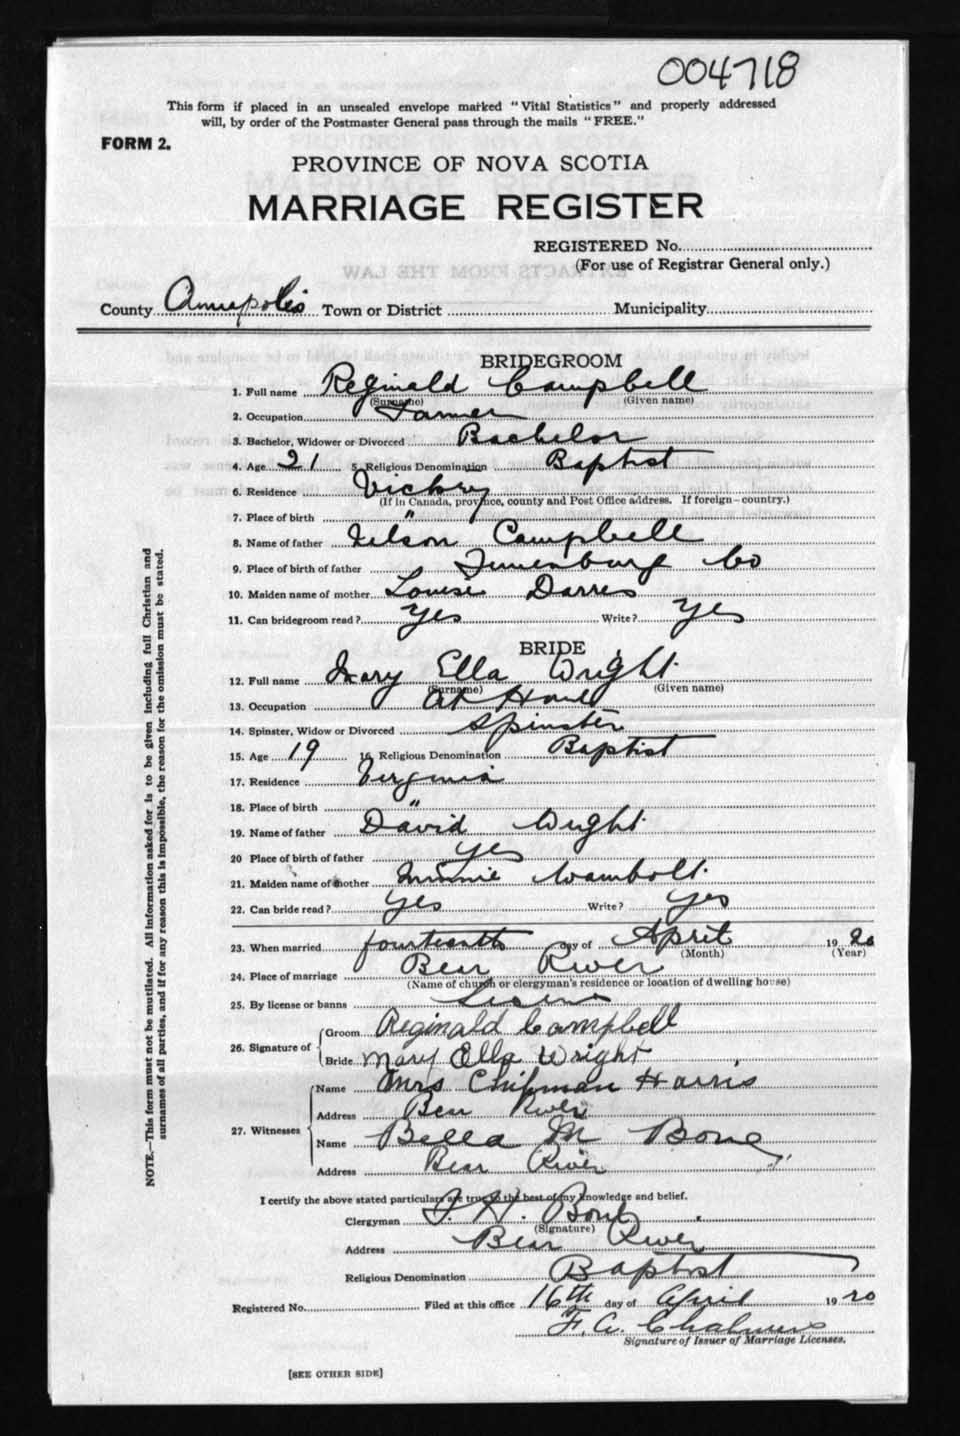 004718
This form if placed in an unsealed envelope marked "Vital Statistics" and properly addressed
will, by order of the Postmaster General pass through the mails "FREE."
FORM 2.
PROVINCE OF NOVA SCOTIA
MARRIAGE REGISTER
REGISTERED No.
(For use of Registrar General only.)
County Annapolis Town or District Municipality
BRIDEGROOM
1. Full name Reginald Campbell
(Surname) (Given name)
2. Occupation Farmer
3. Bachelor, Widower or Divorced Bachelor
4. Age 21 5. Religious Denomination Baptist
6. Residence Victory
(If in Canada, province, county and Post Office address. If foreign—country.)
7. Place of birth "
8. Name of father Nelson Campbell
9. Place of birth of father Lunenburg Co
10. Maiden name of mother Louise Darres
11. Can bridegroom read? Yes Write? Yes
BRIDE
12. Full name Mary Ella Wright
(Surname) (Given name)
13. Occupation At Home
14. Spinster, Widow or Divorced Spinster
15. Age 19 16. Religious Denomination Baptist
17. Residence Virginia
18. Place of birth "
19. Name of father David Wright
20 Place of birth of father yes
21. Maiden name of mother Minnie Wambolt
22. Can bride read? Yes Write? Yes
23. When married fourteenth day of April 1920
(Month) (Year)
24. Place of marriage Bear River
(Name of church or clergyman's residence or location of dwelling house)
25. By license or banns License
26. Signature of Groom Reginald Campbell
Bride Mary Ella Wright
27. Witnesses Name Mrs Chipman Harris
Address Bear River
Name Bella M Bone
Address Bear River
I certify the above stated particulars are true to the best of my knowledge and belief.
Clergyman I. H. Bone
(Signature)
Address Bear River
Religious Denomination Baptist
Registered No. Filed at this office 16th day of April 1920
F. W. Chalmers
Signature of Issuer of Marriage Licenses.
[SEE OTHER SIDE]
NOTE.—This form must not be mutilated. All information asked for is to be given including full Christian and
surnames of all parties, and if for any reason this is impossible, the reason for the omission must be stated.